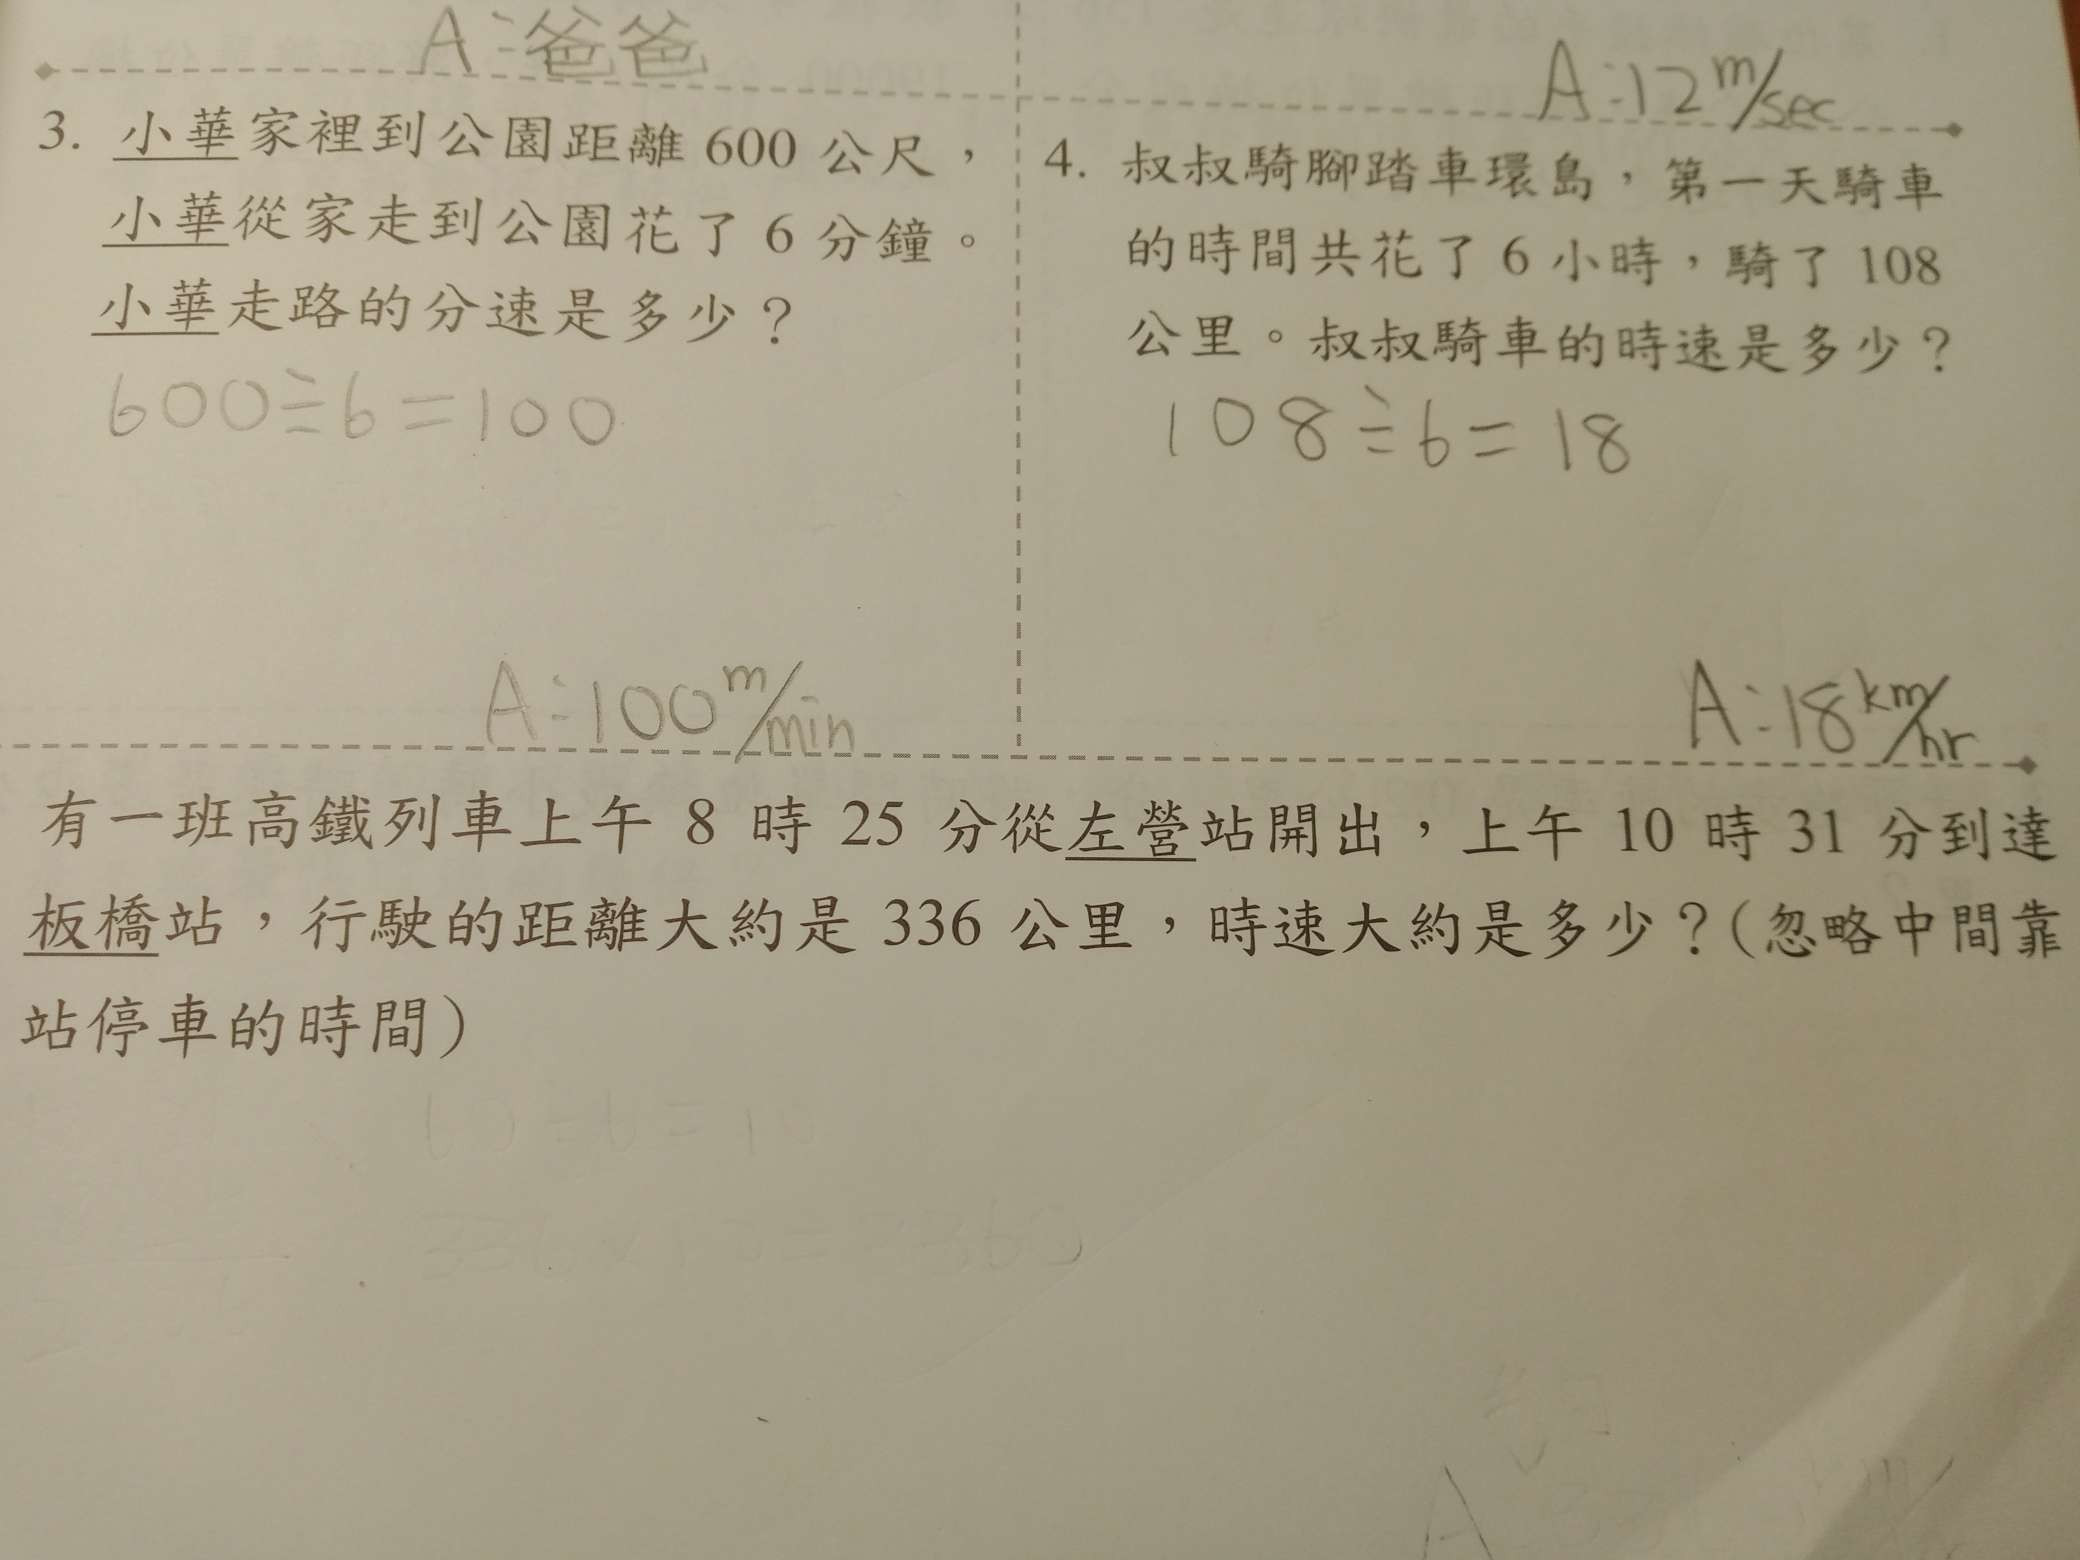 A:爸爸
A:12 m/sec
3. 小華家裡到公園距離 600 公尺，
小華從家走到公園花了 6 分鐘。
小華走路的分速是多少？
600÷6=100
A:100 m/min
4. 叔叔騎腳踏車環島，第一天騎車
的時間共花了 6 小時，騎了 108
公里。叔叔騎車的時速是多少？
108÷6=18
A:18 km/hr
有一班高鐵列車上午 8 時 25 分從左營站開出，上午 10 時 31 分到達
板橋站，行駛的距離大約是 336 公里，時速大約是多少？(忽略中間靠
站停車的時間)